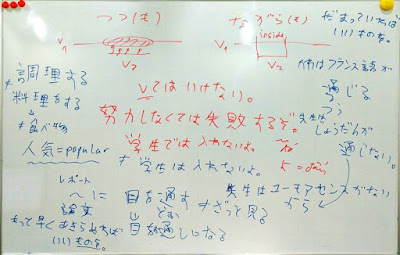 つつ(も)
V1
V2
ながら(も)
inside
V1
V2
だまっていれば
いいものを。
調理する
≠
料理をする
↓
≠食べ物
人気=popular
Vてはいけない。
努力しなくては失敗するぞ。
学生では入れないよ。
≠学生は入れないよ。
フランス語が
通じる
じょうだんが
通じない。
先生はユーモアセンスがない
から
レポート
〜に
論文
目を通す
≠ざっと見る
↓
目を通しになる
もって早く
いいものを。